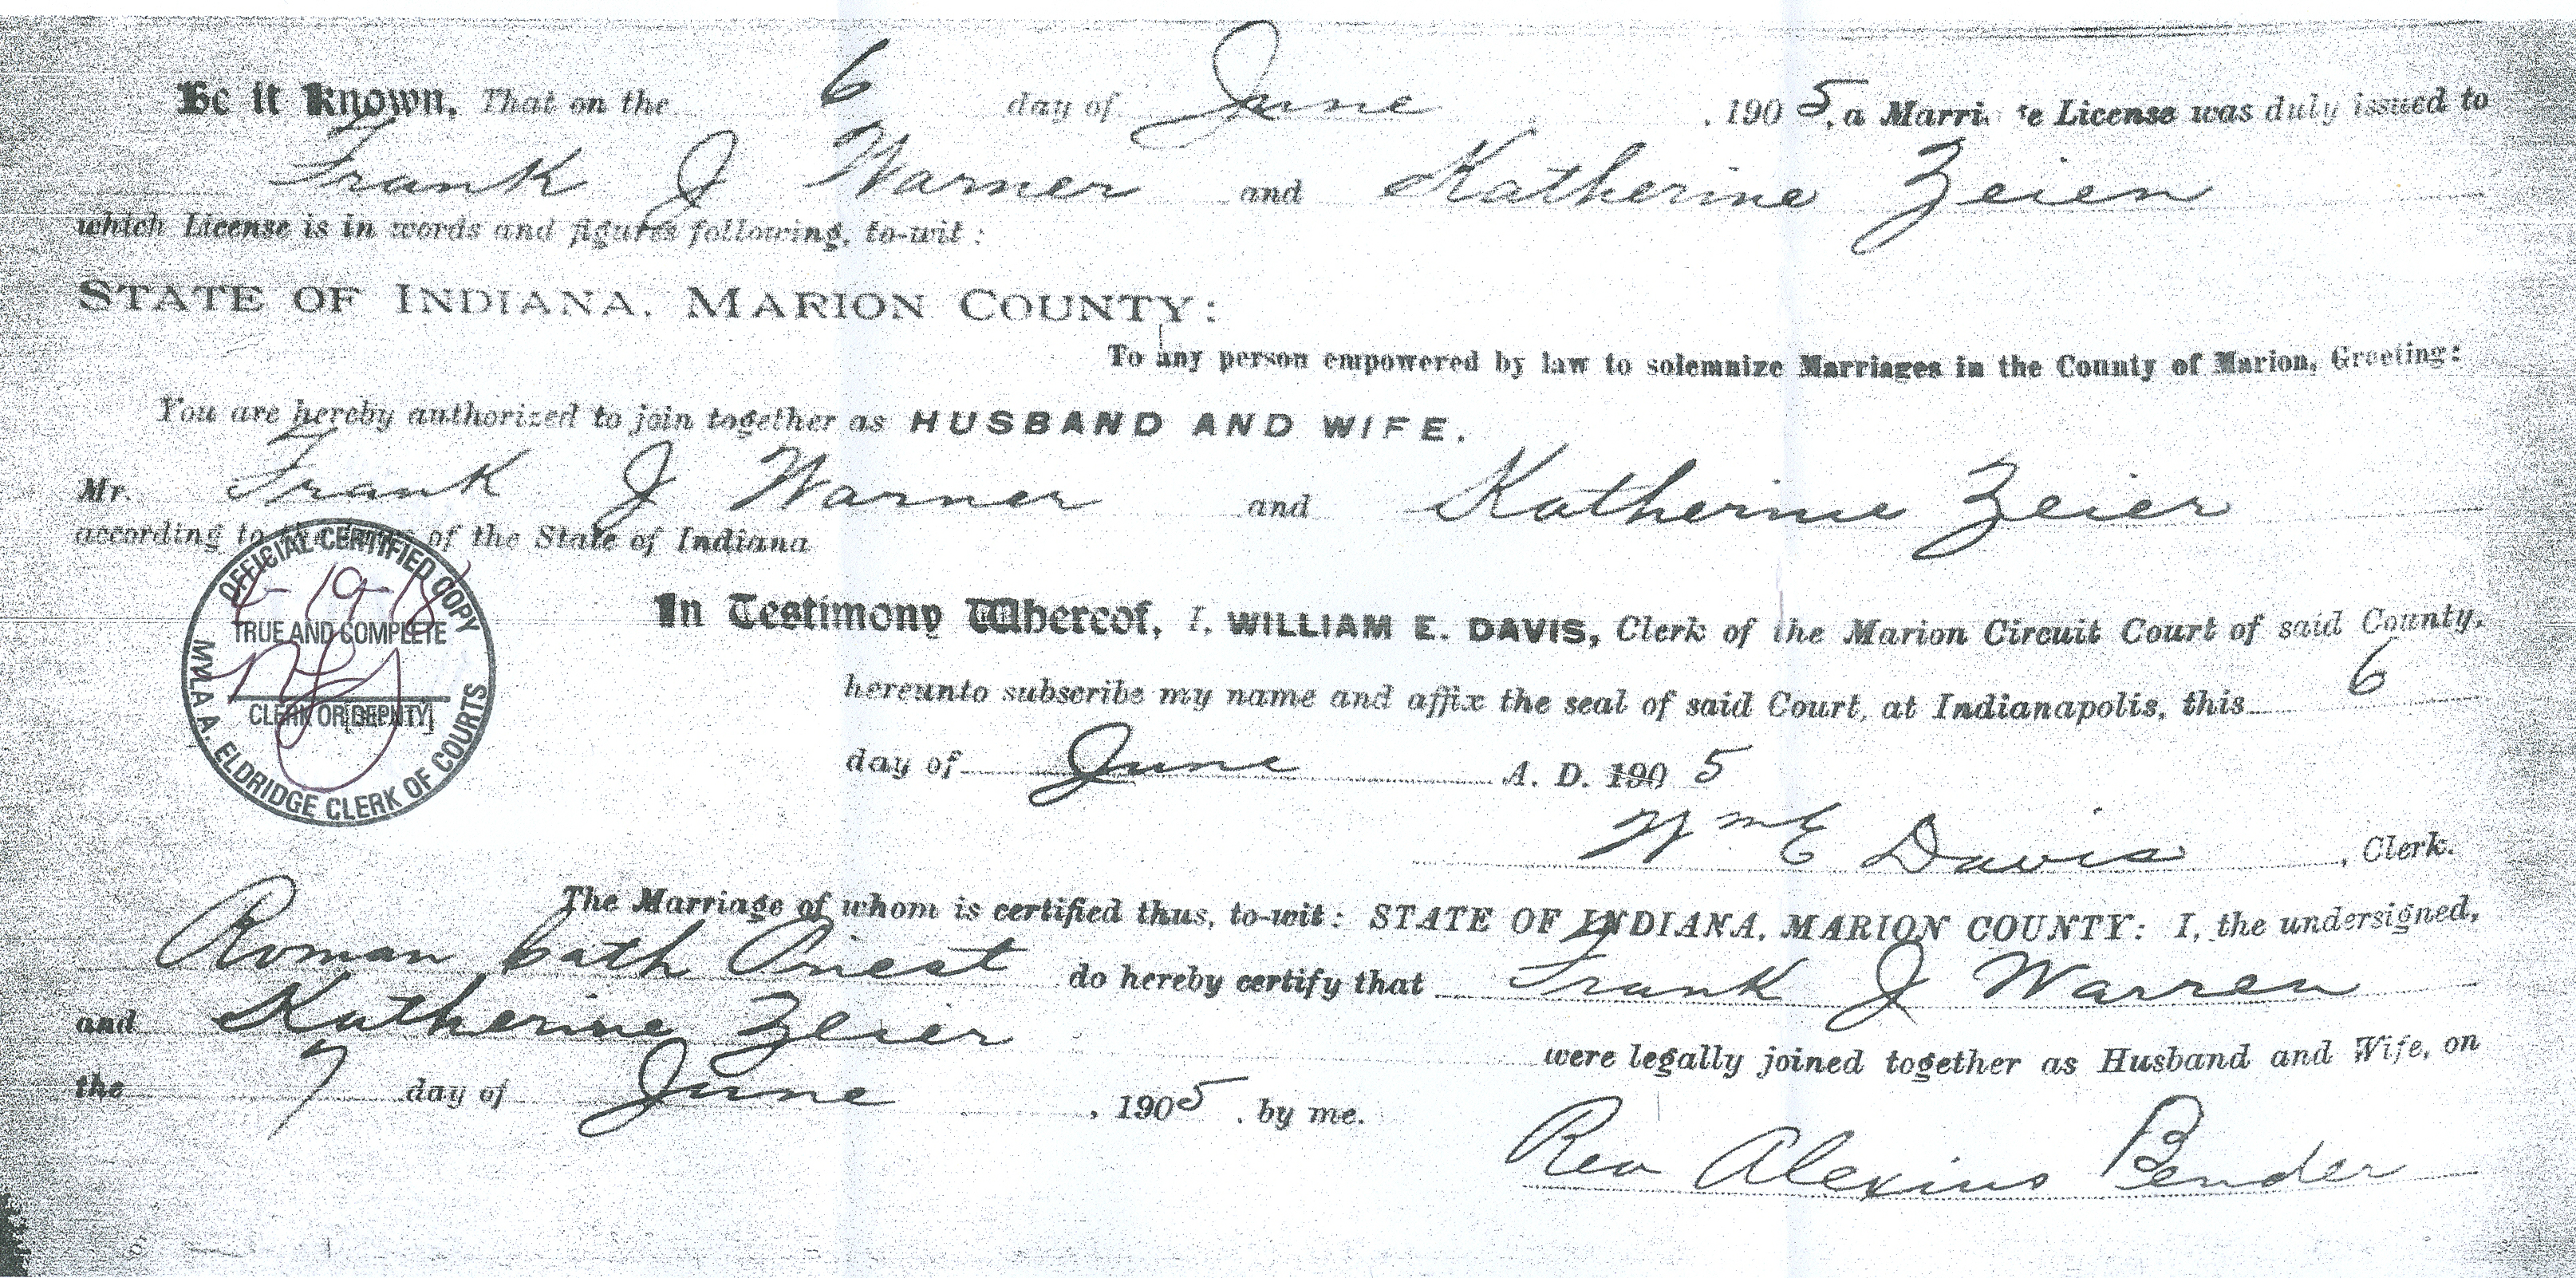 Be it known, That on the 6 day of June, 1905, a Marri e License was duly issued to
Frank J Warner and Katherine Zeien
which License is in words and figures following, to-wit:
STATE OF INDIANA, MARION COUNTY:
To any person empowered by law to solemnize Marriages in the County of Marion, Greeting:
You are hereby authorized to join together as HUSBAND AND WIFE.
Mr. Frank J Warner and Katherine Zeier
according to the laws of the State of Indiana
OFFICIAL CERTIFIED COPY
TRUE AND COMPLETE
CLERK OR [DEPUTY]
MYLA A. ELDRIDGE CLERK OF COURTS
In Testimony Whereof, I, WILLIAM E. DAVIS, Clerk of the Marion Circuit Court of said County,
hereunto subscribe my name and affix the seal of said Court, at Indianapolis, this 6
day of June A. D. 1905
Wm E Davis, Clerk.
The Marriage of whom is certified thus, to-wit: STATE OF INDIANA, MARION COUNTY: I, the undersigned,
Roman Cath Priest do hereby certify that Frank J Warren
and Katherine Zeier were legally joined together as Husband and Wife, on
the 7 day of June, 1905. by me.
Rev Alexius Bender